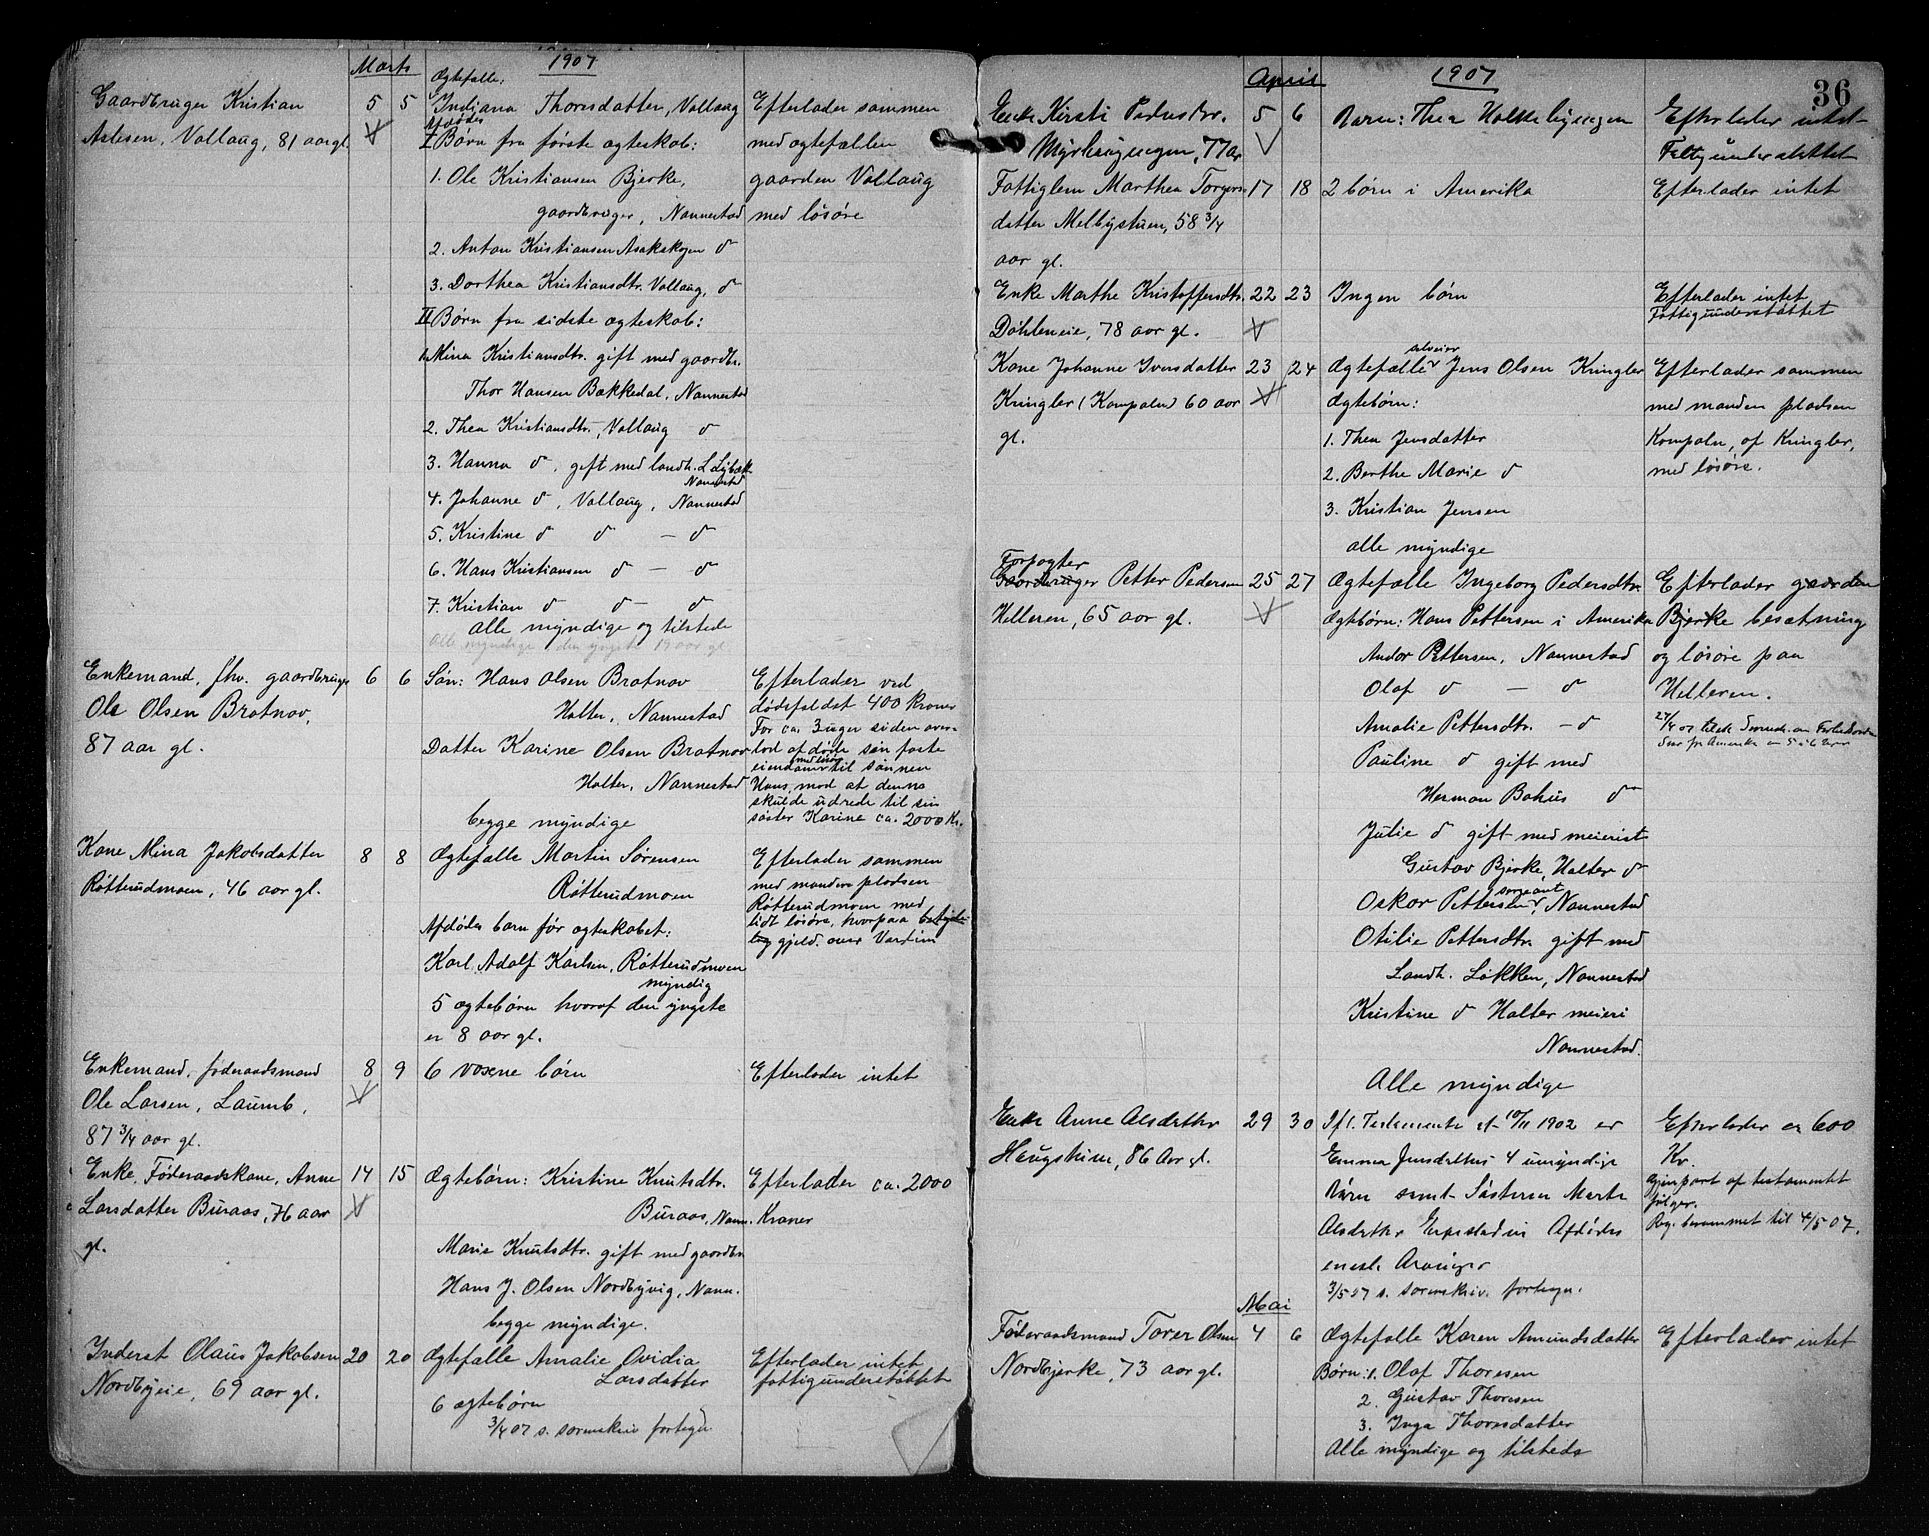 Marts
1907
Gaardbruger Kristian
Aslesen, Vollaug, 81 aargl.
5 5
Ægtefælle:
Indiana Thorsdatter, Vollaug
Afdødes
I Børn fra første ægteskab:
1. Ole Kristiansen Bjerke,
gaardbruger, Nannestad
2. Anton Kristiansen Asakskogen d
3. Dorthea Kristiansdtr. Vollaug, d
II Børn fra sidste ægteskab:
1. Mina Kristiansdtr. gift med gaardbr.
Thor Hansen Bakkedal, Nannestad
2. Thea Kristiansdtr., Vollaug d
3. Hanna d, gift med landh. L. Lybæk
Nannestad
4. Johanne d, Vollaug, Nannestad
5. Kristine d d — d
6. Hans Kristiansen d — d
7. Kristian d d — d
alle myndige og tilstede
Alle myndige den yngste aar gl
Efterlader sammen
med ægtefællen
gaarden Vollaug
med løsøre
Enkemand, fhv. gaardbruger
Ole Olsen Bratnov,
87 aar gl.
6 6
Søn: Hans Olsen Bratnov
Holter, Nannestad
Datter Karine Olsen Bratnov
Holter, Nannestad
begge myndige
Efterlader ved
dødsfaldet 400 kroner
For ca. 3 uger siden over-
lod afdøde sin faste
eiendom med løsøre til sønnen
Hans, mod at denne
skulde udrede til sin
søster Karine ca. 2000 Kr.
Kone Mina Jakobsdatter
Røtterudmoen, 46 aar gl.
8 8
Ægtefælle Martin Sørensen
Røtterudmoen
Afdødes barn før ægteskabet:
Karl Adolf Karlsen, Røtterudmoen
myndig
5 ægtebørn hvoraf den yngste
er 8 aar gl.
Efterlader sammen
med manden pladsen
Røtterudmoen med
lidt løsøre, hvorpaa betyde-
lig gjeld. over Værdien
Enkemand, føderaadsmand
Ole Larsen, Laumb,
87 3/4 aar gl.
8 9
6 voxene børn
Efterlader intet
Enke, Føderaadskone, Anne
Larsdatter Buraas, 76 aar
gl.
14 15
Ægtebørn: Kristine Knutsdtr.
Buraas, Nann.
Marie Knutsdtr. gift med gaardbr.
Hans J. Olsen Nordbyvig, Nann.
begge myndige.
Efterlader ca. 2000
Kroner
Inderst Olaus Jakobsen
Nordbyeie, 69 aar gl.
20 20
Ægtefælle Amalie Ovidia
Larsdatter
6 ægtebørn
3/4 07 s. sorenskriv fortegn
Efterlader intet
fattigunderstøttet
April
1907
36
Enke Kirsti Pedersdtr.
Myrbryengen, 77 ar
5 6
Barn: Thea Holkebyengen
Efterlader intet
Fattigunderstøttet
Fattiglem Marthea Torgers-
datter Melbystuen, 58 3/4
aar gl.
17 18
2 børn i Amerika
Efterlader intet
Enke Marthe Kristoffersdtr.
Døhleneie, 78 aar gl.
22 23
Ingen børn
Efterlader intet
Fattigunderstøttet
Kone Johanne Iversdatter
Kringler (Kompaln) 60 aar
gl.
23 24
Ægtefælle selveier Jens Olsen Kringler
Ægtebørn:
1. Thea Jensdatter
2. Berthe Marie d
3. Kristian Jensen
alle myndige
Efterlader sammen
med manden pladsen
Kompaln, af Kringler,
med løsøre.
Forpagter
Gaardbruger Petter Pedersen
Helleren, 65 aar gl.
25 27
Ægtefælle Ingeborg Pedersdtr.
Ægtebørn: Hans Pettersen i Amerika
Andor Pettersen, Nannestad
Olaf d — d
Amalie Pettersdtr. — d
Pauline d gift med
Herman Bahus d
Julie d gift med meierist
Gustav Bjerke, Holter d
Oskar Pettersen sergeant, Nannestad
Otilie Pettersdtr. gift med
Landh. Løkken, Nannestad
Kristine d Holter meieri
Nannestad.
Alle myndige
Efterlader gaarden
Bjerke besætning
og løsøre paa
Helleren.
27/4 07
Enke Anne Alsdatter
Haugstuen, 86 Aar gl.
29 30
Ifl. Testamente af 10/11 1902 er
Emma Jensdatters 4 umyndige
Børn samt Søsteren Marte
Alsdatter Afdødes
eneste Arvinger
3/5 07 s. sorenskriv. fortegn.
Efterlader ca 600
Kr.
Gjenpart af testamentet
følger.
Reg. berammet til 4/5 07.
Mai
Føderaadsmand Torer Olsen
Nordbjerke, 73 aar gl.
4 6
Ægtefælle Karen Amundsdatter
Børn: 1. Olaf Thoresen
2. Gustav Thoresen
3. Inga Thoresdatter
Alle myndige og tilstede
Efterlader intet